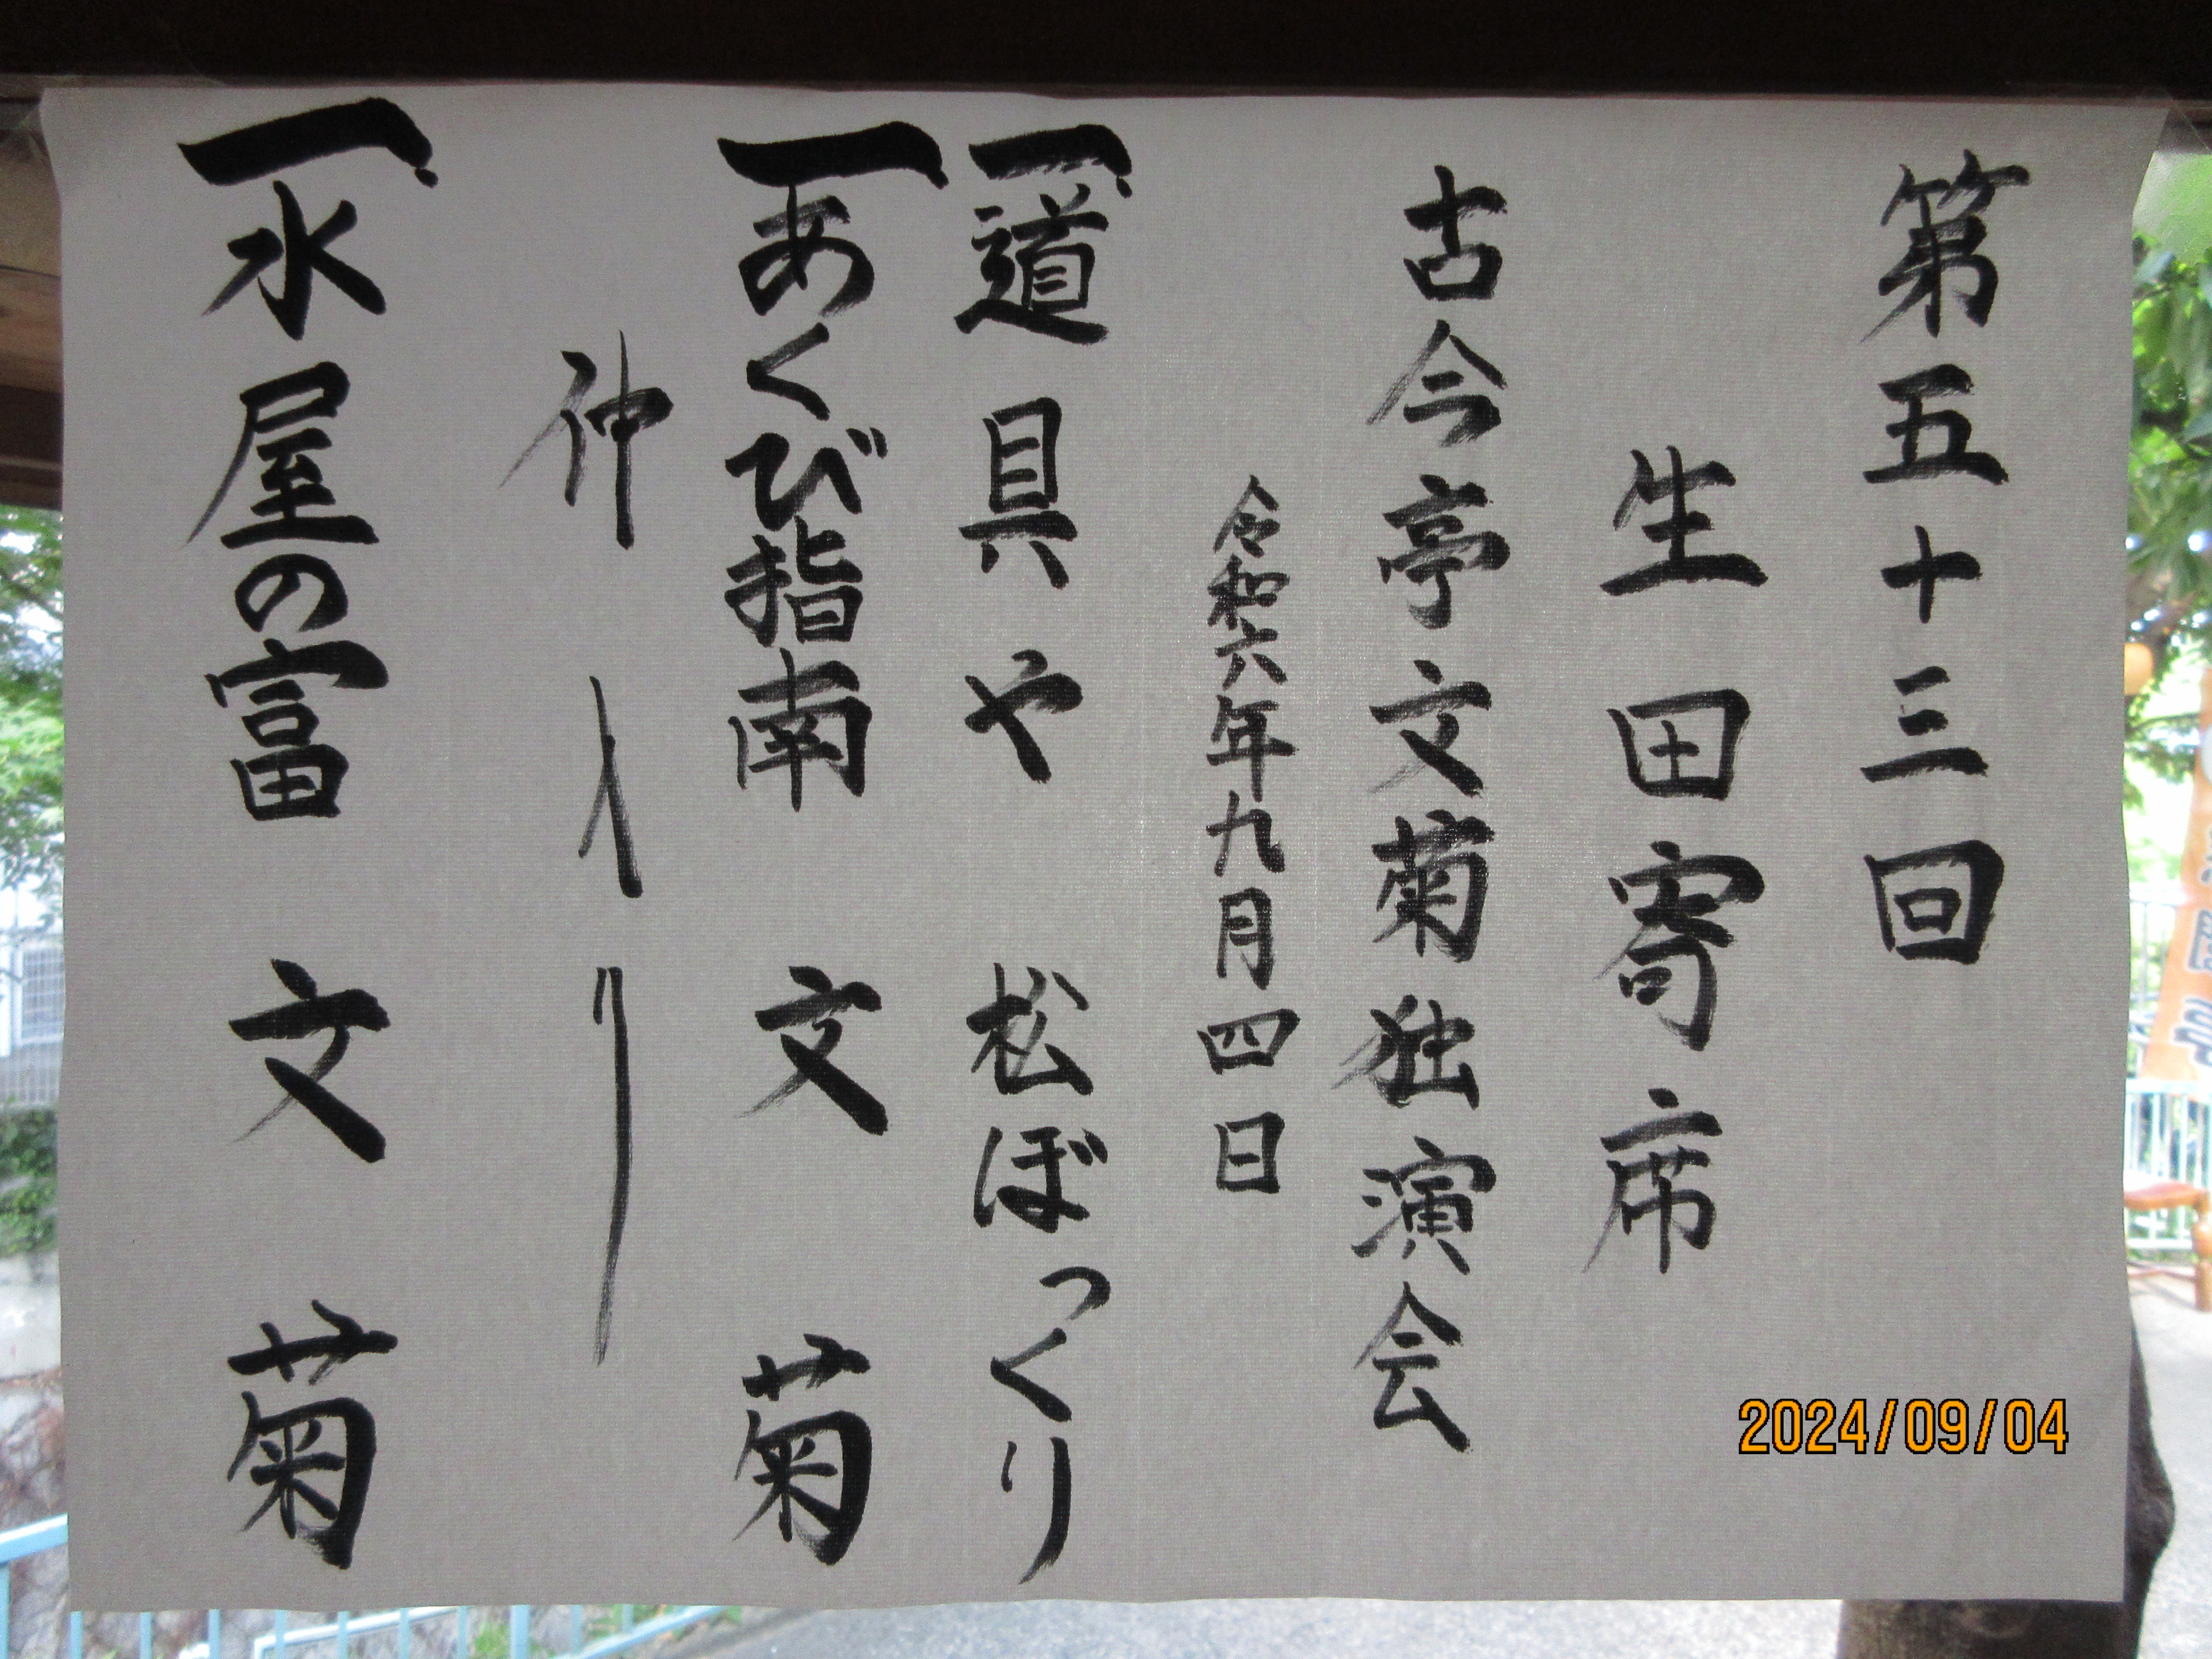 第五十三回
生田寄席
古今亭文菊独演会
令和六年九月四日
一、道具や 松ぼっくり
一、あくび指南 文菊
仲入り
一、水屋の富 文菊
2024/09/04